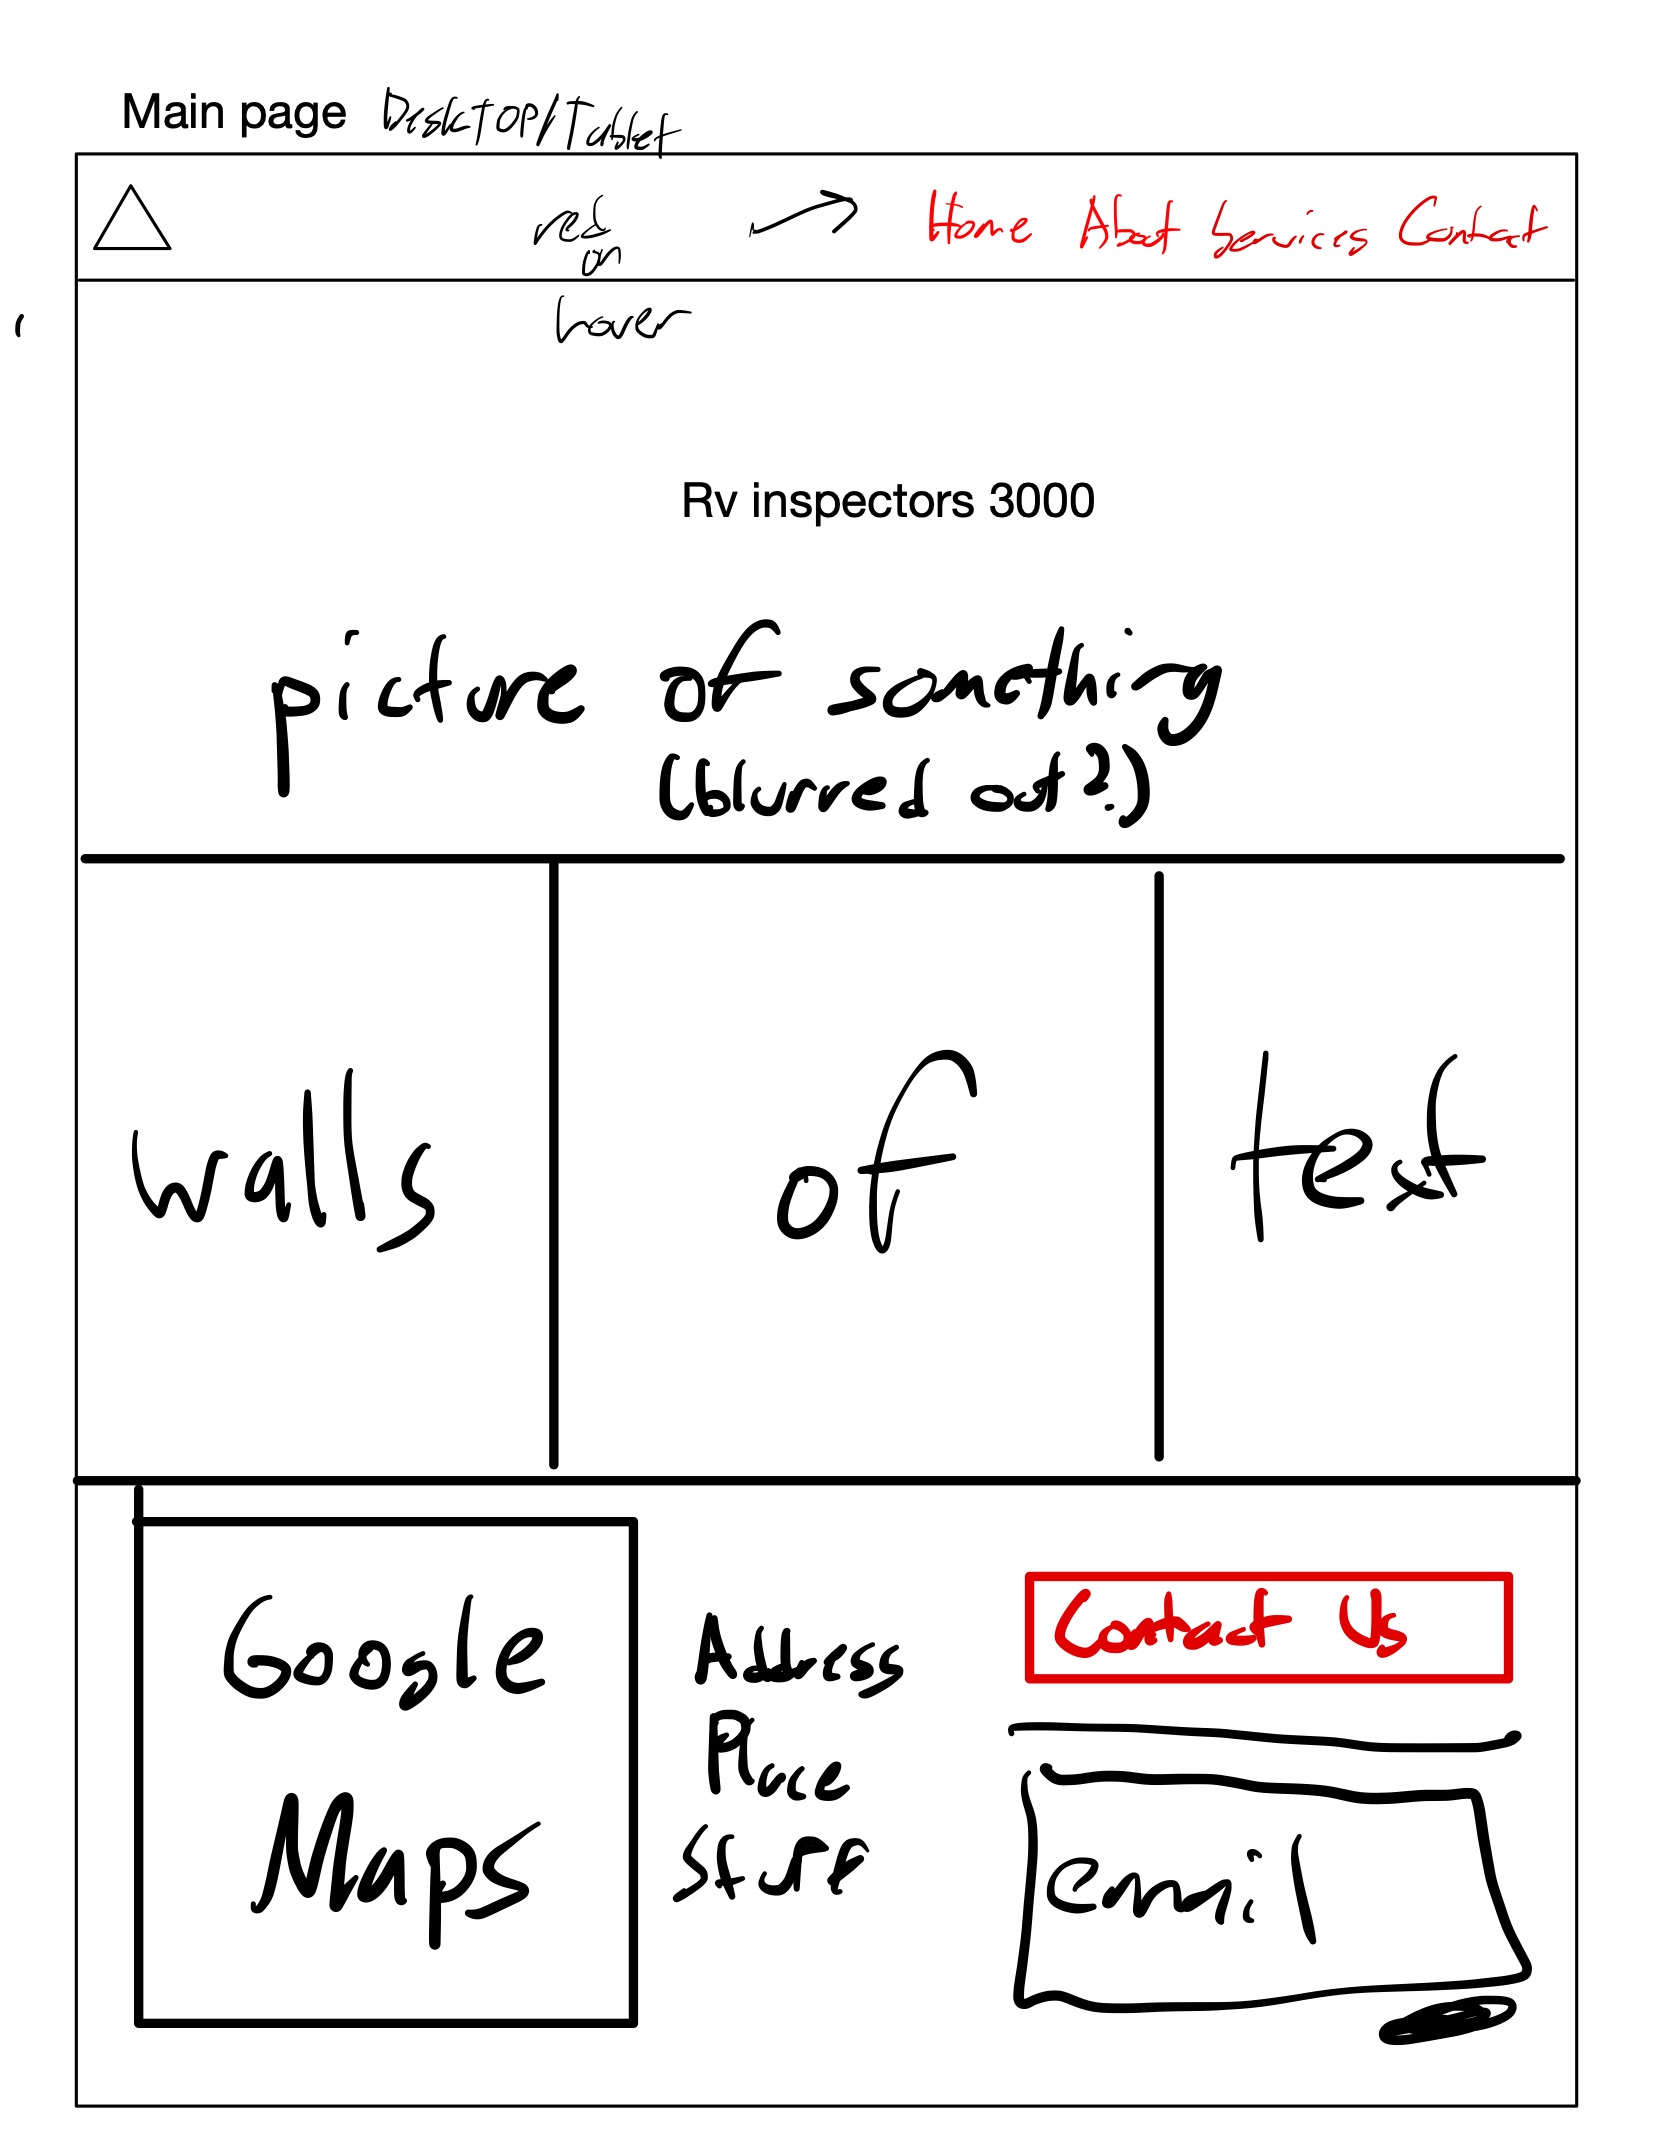 Main page Desktop/Tablet
red
on
hover
Home About Services Contact
Rv inspectors 3000
picture of something
(blurred out?)
walls of text
Google
Maps
Address
Place
Stuff
Contact Us
email